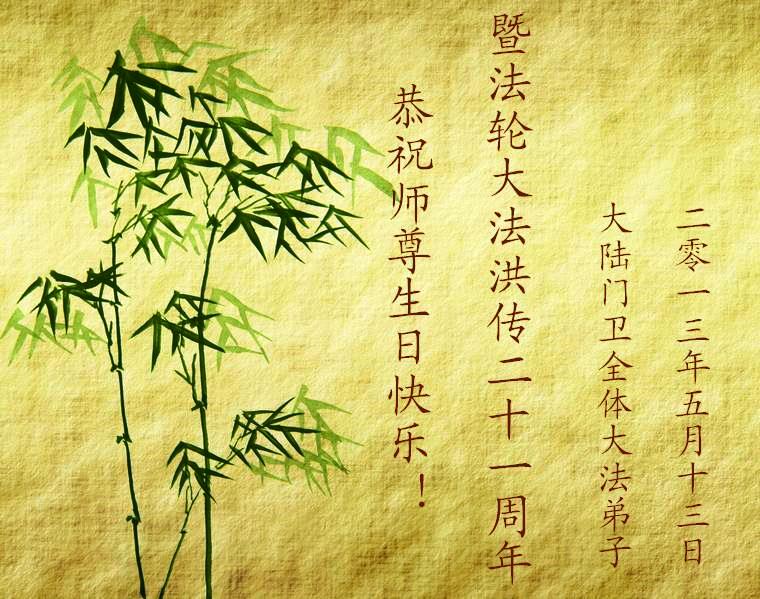 恭祝师尊生日快乐！
暨法轮大法洪传二十一周年
大陆门卫全体大法弟子
二零一三年五月十三日